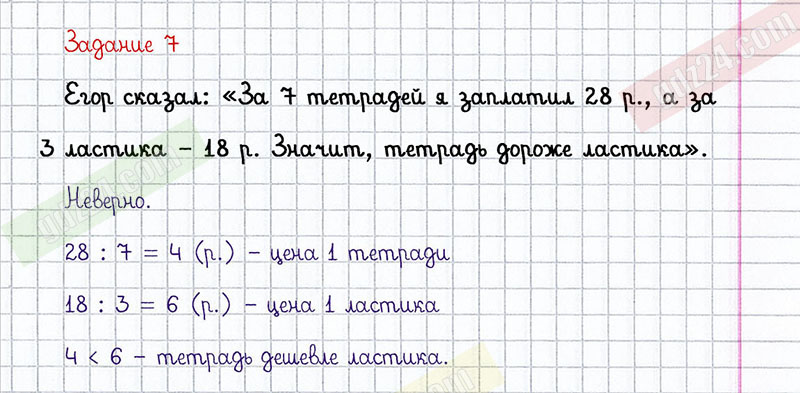 Задание 7
Егор сказал: «За 7 тетрадей я заплатил 28 р., а за
3 ластика – 18 р. Значит, тетрадь дороже ластика».
Неверно.
28 : 7 = 4 (р.) – цена 1 тетради
18 : 3 = 6 (р.) – цена 1 ластика
4 < 6 – тетрадь дешевле ластика.
gdz24.com
gdz24.com